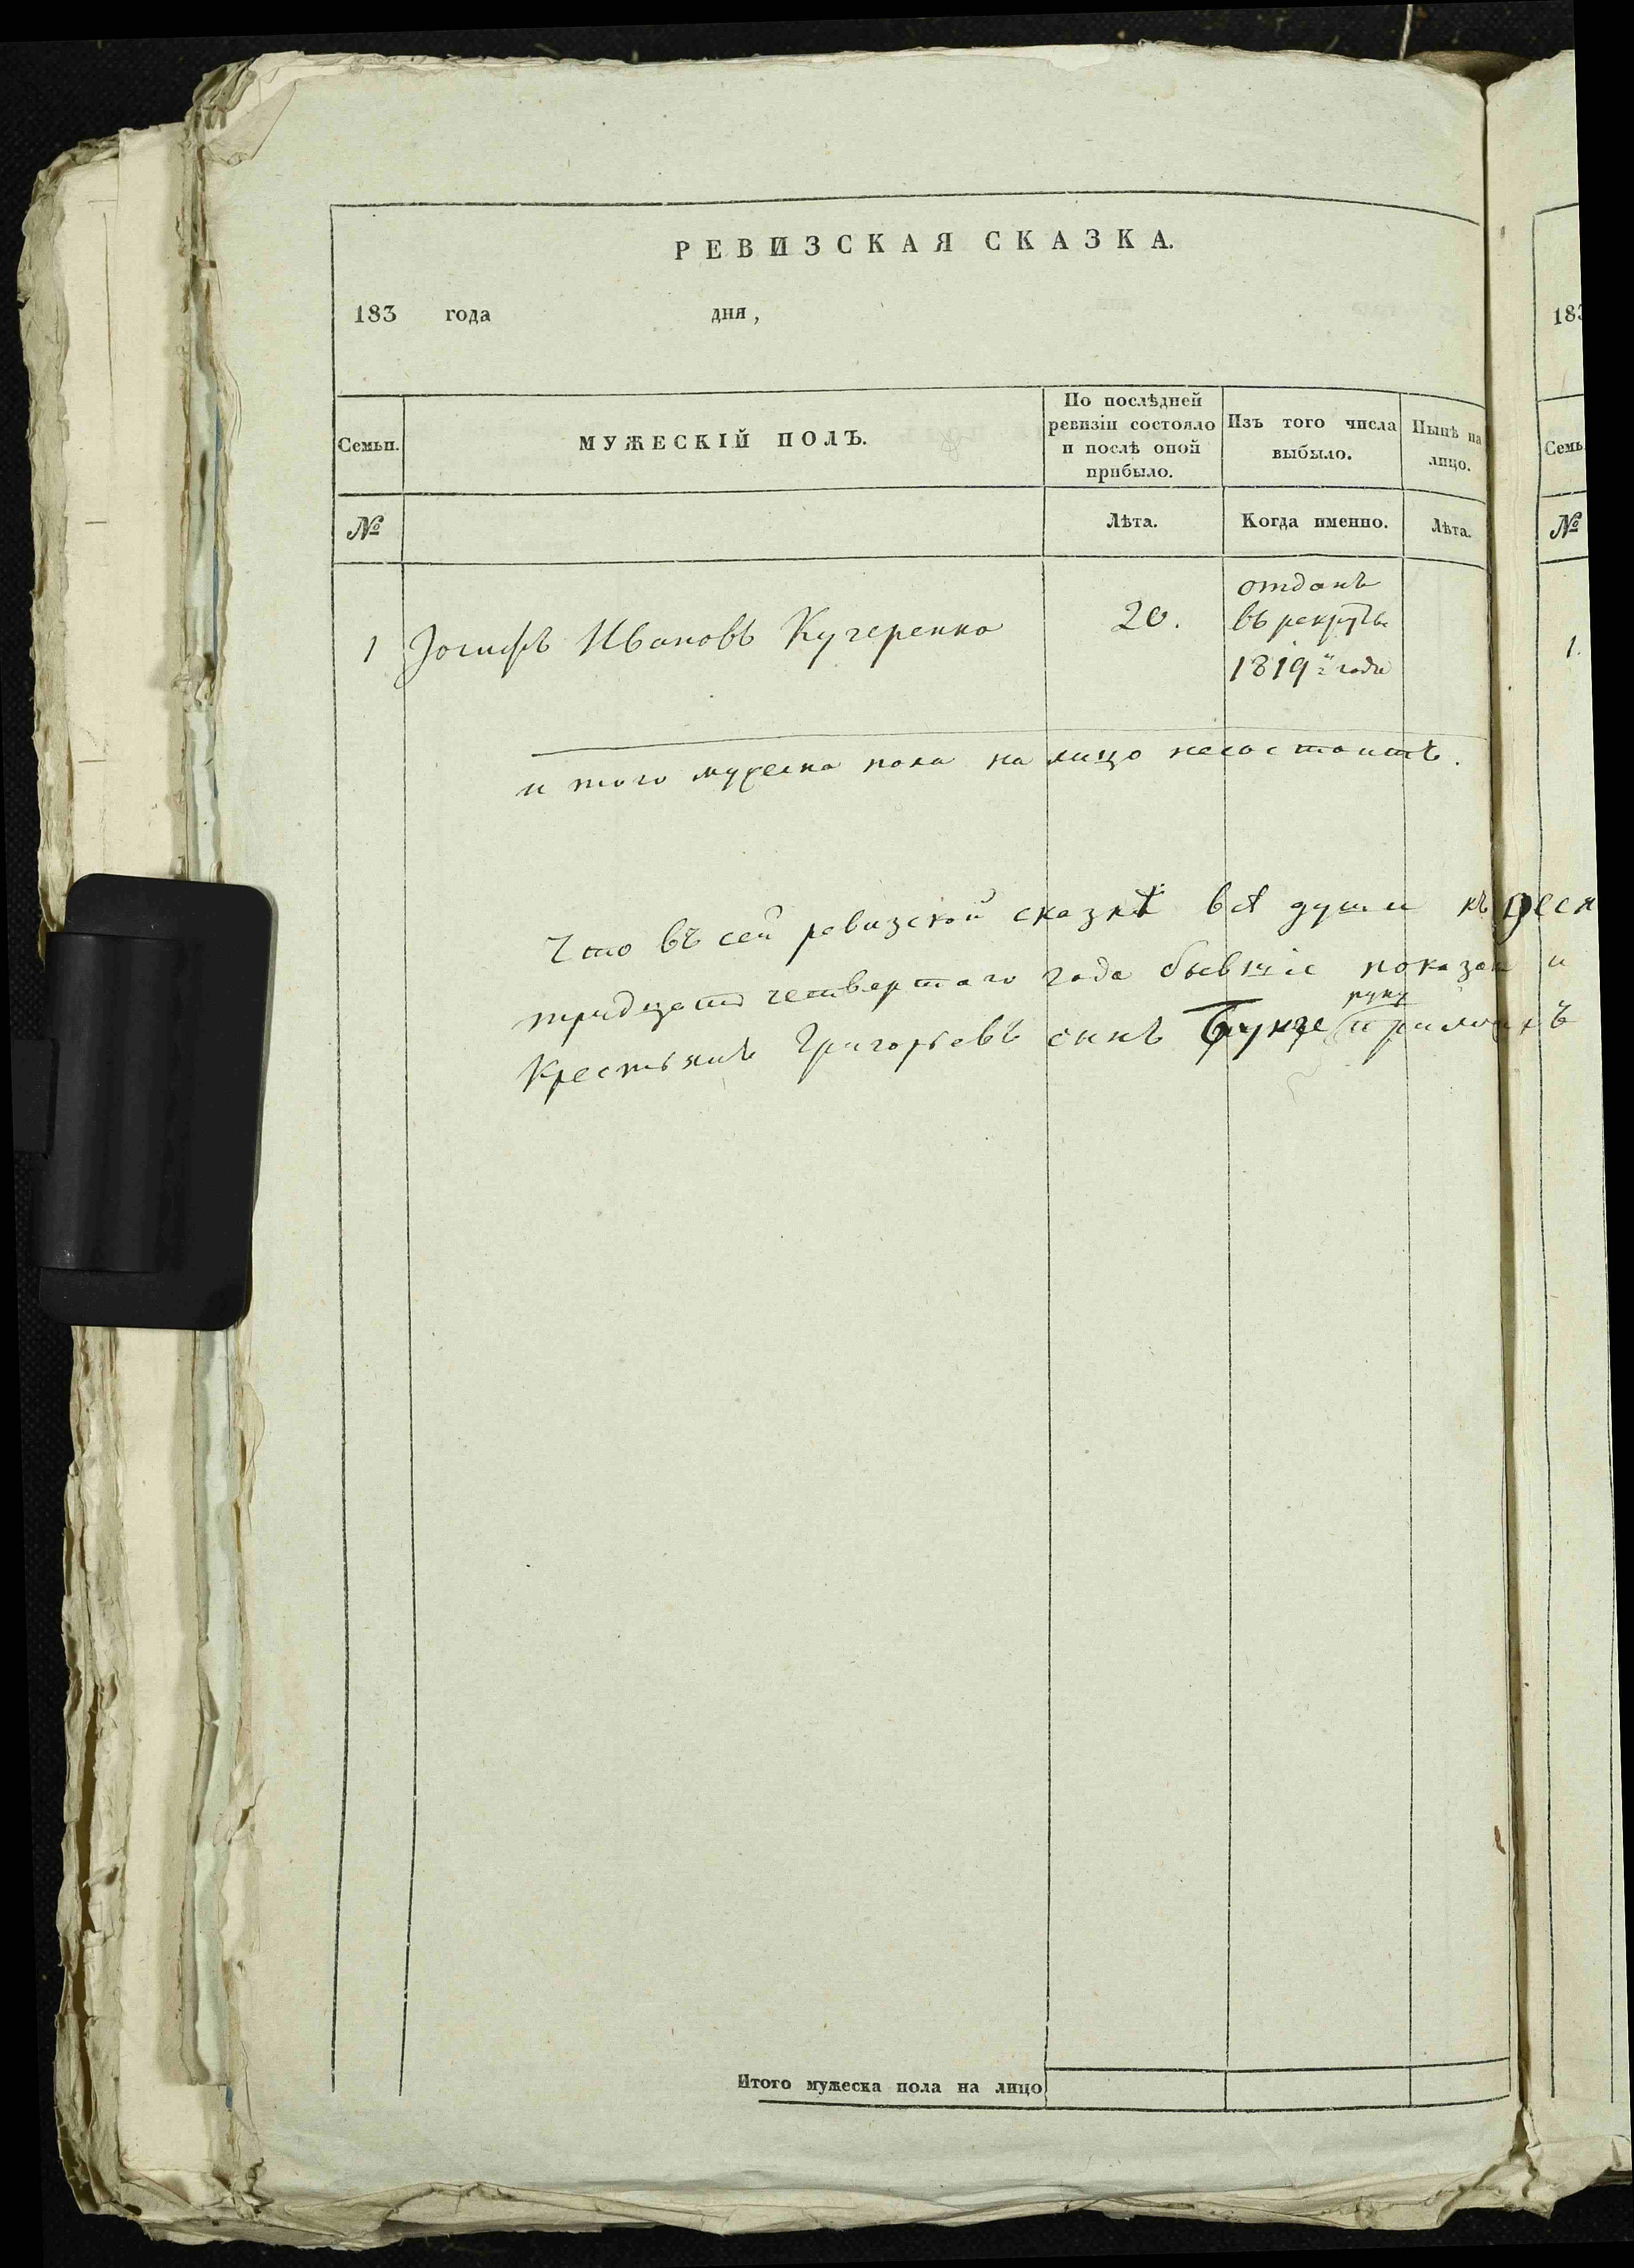 РЕВИЗСКАЯ СКАЗКА.
183 года дня,
Семьи.
МУЖЕСКІЙ ПОЛЪ.
По послѣдней
ревизіи состояло
и послѣ оной
прибыло.
Изъ того числа
выбыло.
Нынѣ на
лицо.
№
Лѣта.
Когда именно.
Лѣта.
1 Іосифъ Ивановъ Кучеренко
20.
отданъ
въ рекруты
1819 года
и того мужеска пола на лицо несостоитъ.
Что въ сей ревизской сказкѣ всѣ души къ деся
тридцать четвертаго года бывшіе показан и
руку
Крестьнинъ Григорьевъ синъ приложилъ
Итого мужеска пола на лицо
183
Семь
№
1.